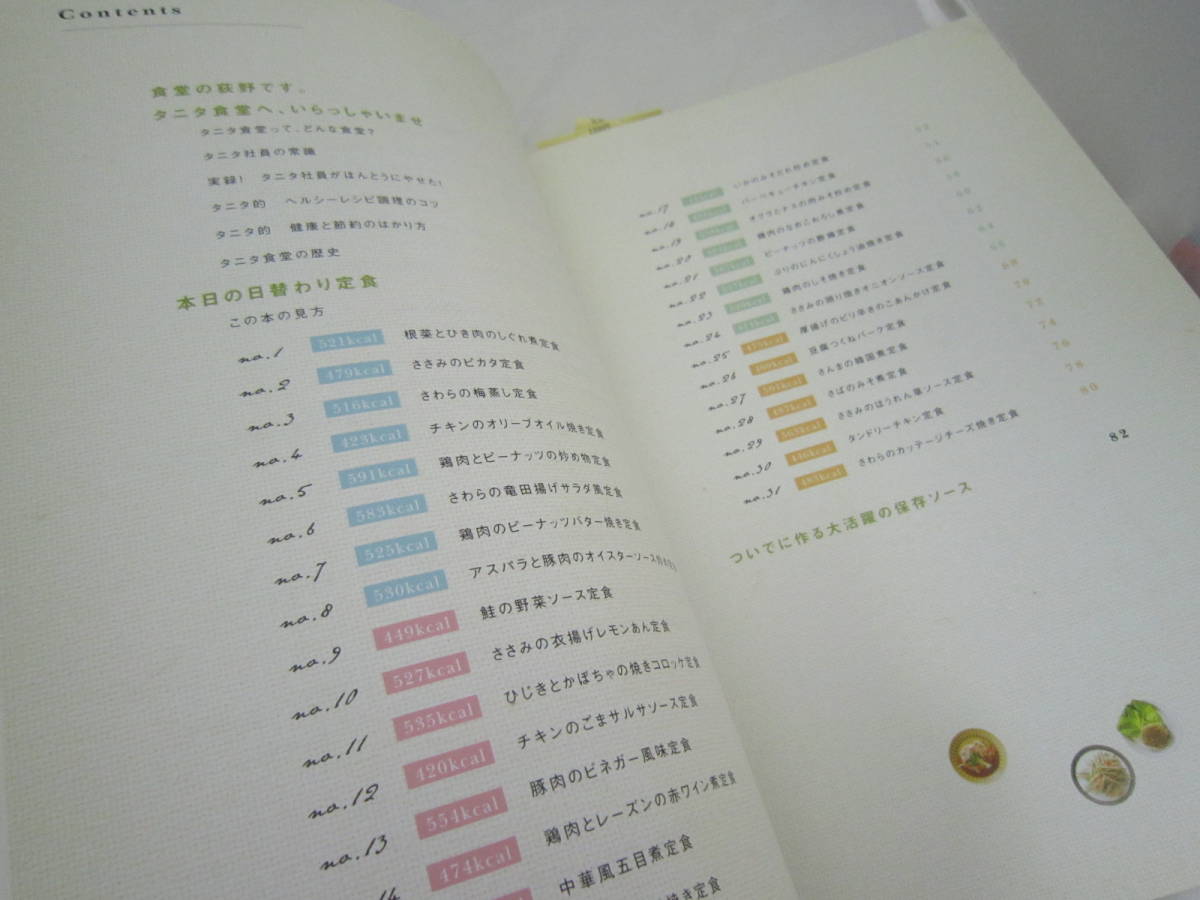 Contents
食堂の荻野です。
タニタ食堂へ、いらっしゃいませ
タニタ食堂って、どんな食堂?
タニタ社員の常識
実録! タニタ社員がほんとうにやせた!
タニタ的 ヘルシーレシピ調理のコツ
タニタ的 健康と節約のはかり方
タニタ食堂の歴史
本日の日替わり定食
この本の見方
no.1 521kcal 根菜とひき肉のしぐれ煮定食
no.2 479kcal ささみのピカタ定食
no.3 516kcal さわらの梅蒸し定食
no.4 423kcal チキンのオリーブオイル焼き定食
no.5 591kcal 鶏肉とピーナッツの炒め物定食
no.6 583kcal さわらの竜田揚げサラダ風定食
no.7 525kcal 鶏肉のピーナッツバター焼き定食
no.8 530kcal アスパラと豚肉のオイスターソース炒め定食
no.9 449kcal 鮭の野菜ソース定食
no.10 527kcal ささみの衣揚げレモンあん定食
no.11 535kcal ひじきとかぼちゃの焼きコロッケ定食
no.12 420kcal チキンのごまサルサソース定食
no.13 554kcal 豚肉のビネガー風味定食
no.14 474kcal 鶏肉とレーズンの赤ワイン煮定食
中華風五目煮定食
焼き定食
no.17 いかのみそだれ炒め定食 52
no.18 バーベキューチキン定食 54
no.19 オクラとナスの肉みそ炒め定食 56
no.20 鶏肉のなめこおろし煮定食 58
no.21 ピーナッツの酢鶏定食 60
no.22 ぶりのにんにくしょう油焼き定食 62
no.23 鶏肉のしそ焼き定食 64
no.24 ささみの照り焼きオニオンソース定食 66
no.25 475kcal 厚揚げのピリ辛きのこあんかけ定食 68
no.26 豆腐つくねバーグ定食 70
no.27 さんまの韓国煮定食 72
no.28 497kcal さばのみそ煮定食 74
no.29 ささみのほうれん草ソース定食 76
no.30 446kcal タンドリーチキン定食 78
no.31 さわらのカッテージチーズ焼き定食 80
ついでに作る大活躍の保存ソース 82